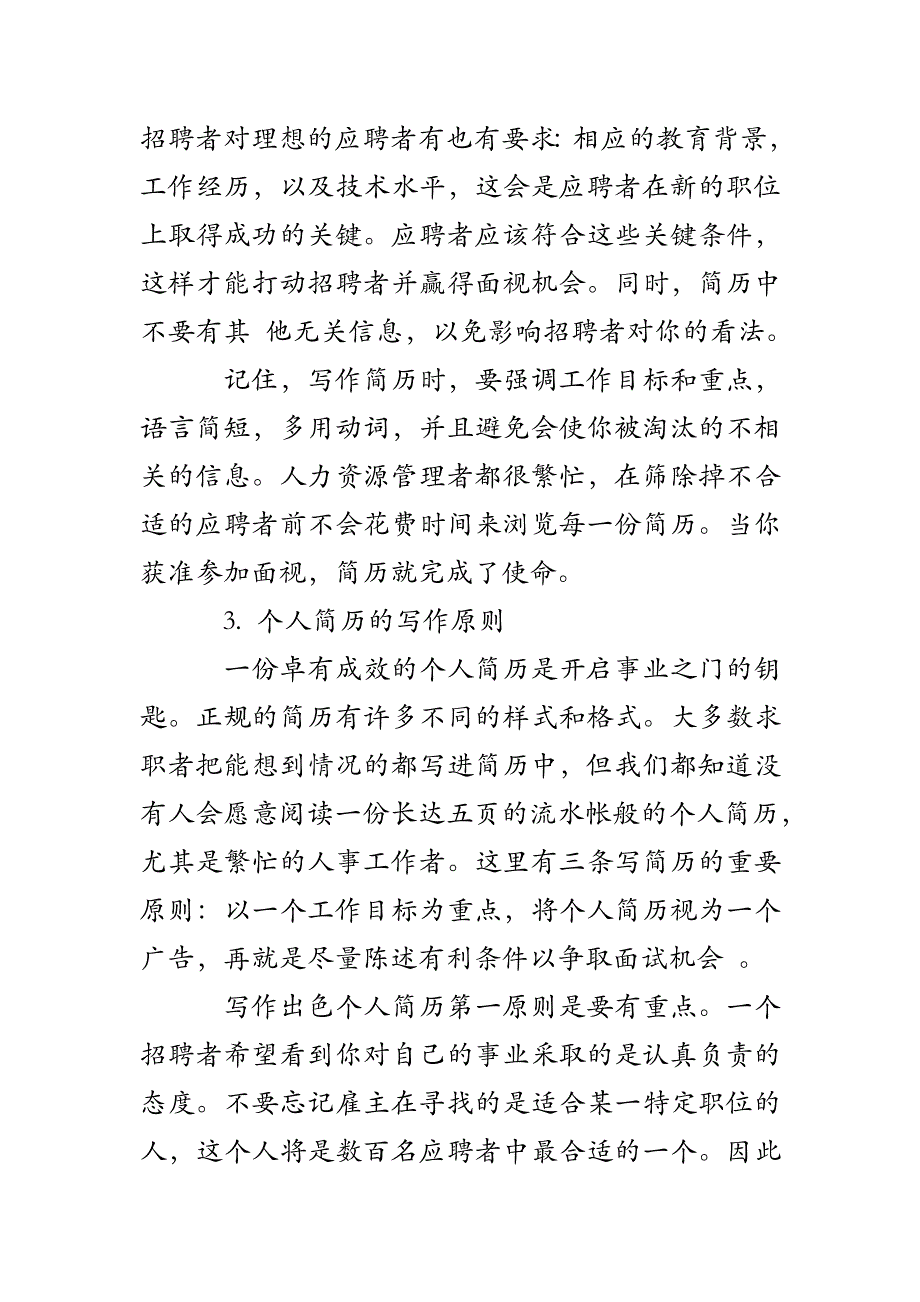 招聘者对理想的应聘者有也有要求: 相应的教育背景，
工作经历，以及技术水平，这会是应聘者在新的职位
上取得成功的关键。应聘者应该符合这些关键条件，
这样才能打动招聘者并赢得面视机会。同时，简历中
不要有其 他无关信息，以免影响招聘者对你的看法。
记住，写作简历时，要强调工作目标和重点，
语言简短，多用动词，并且避免会使你被淘汰的不相
关的信息。人力资源管理者都很繁忙，在筛除掉不合
适的应聘者前不会花费时间来浏览每一份简历。当你
获准参加面视，简历就完成了使命。
3. 个人简历的写作原则
一份卓有成效的个人简历是开启事业之门的钥
匙。正规的简历有许多不同的样式和格式。大多数求
职者把能想到情况的都写进简历中，但我们都知道没
有人会愿意阅读一份长达五页的流水帐般的个人简历，
尤其是繁忙的人事工作者。这里有三条写简历的重要
原则：以一个工作目标为重点，将个人简历视为一个
广告，再就是尽量陈述有利条件以争取面试机会 。
写作出色个人简历第一原则是要有重点。一个
招聘者希望看到你对自己的事业采取的是认真负责的
态度。不要忘记雇主在寻找的是适合某一特定职位的
人，这个人将是数百名应聘者中最合适的一个。因此